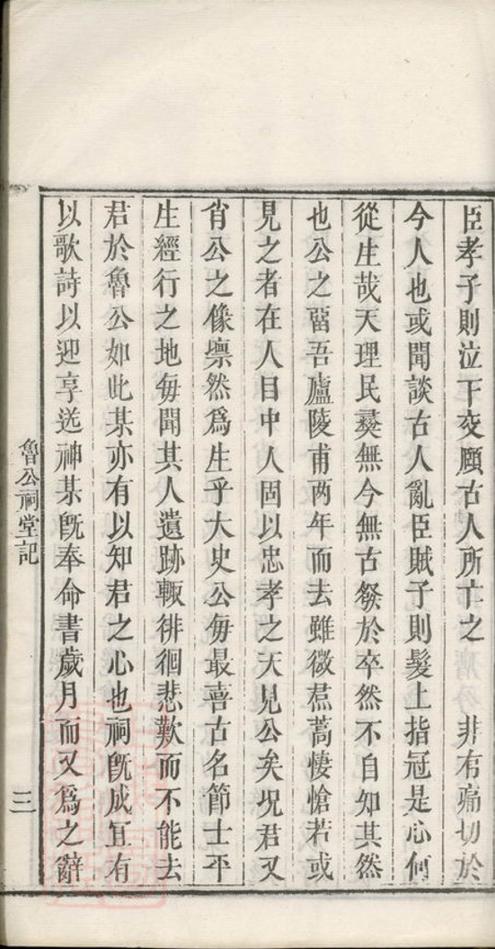 臣孝子則泣下交頤古人所亡之　非有痛切於
今人也或聞談古人亂臣賊子則髮上指冠是心何
從生哉天理民彞無今無古發於卒然不自知其然
也公之畱吾廬陵甫两年而去雖微焄蒿悽愴若或
見之者在人目中人固以忠孝之天見公矣况君又
肖公之像凛然爲生乎大史公毎最喜古名節士平
生經行之地毎聞其人遺跡輙徘徊悲歎而不能去
君於魯公如此某亦有以知君之心也祠旣成宜有
以歌詩以迎享送神某旣奉命書歲月而又爲之辭
魯公祠堂記
三